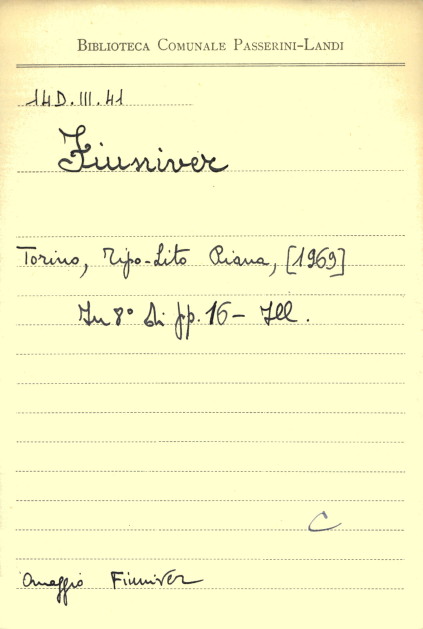 BIBLIOTECA COMUNALE PASSERINI-LANDI
14D.III.41
Fiuniver
Torino, Tipo-Lito Piana, [1969]
In 8° di pp. 16 - Ill.
C
Omaggio Fiuniver